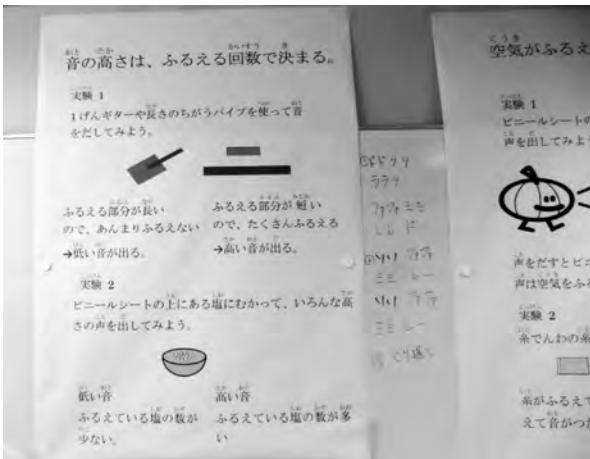 音の高さは、ふるえる回数で決まる。
実験 1
1げんギターや長さのちがうパイプを使って音
をだしてみよう。
ふるえる部分が長い
ので、あんまりふるえない
→低い音が出る。
ふるえる部分が短い
ので、たくさんふるえる
→高い音が出る。
実験 2
ビニールシートの上にある塩にむかって、いろんな高
さの声を出してみよう。
低い音
ふるえている塩の数が
少ない。
高い音
ふるえている塩の数が多
い
ララソ
ファファミミ
レレド
ミミレー
ミミレー
くり返し
空気がふるえ
実験 1
ビニールシートの
声を出してみよ
声をだすとビニ
声は空気をふる
実験 2
糸でんわの糸
糸がふるえて
えて音がつた